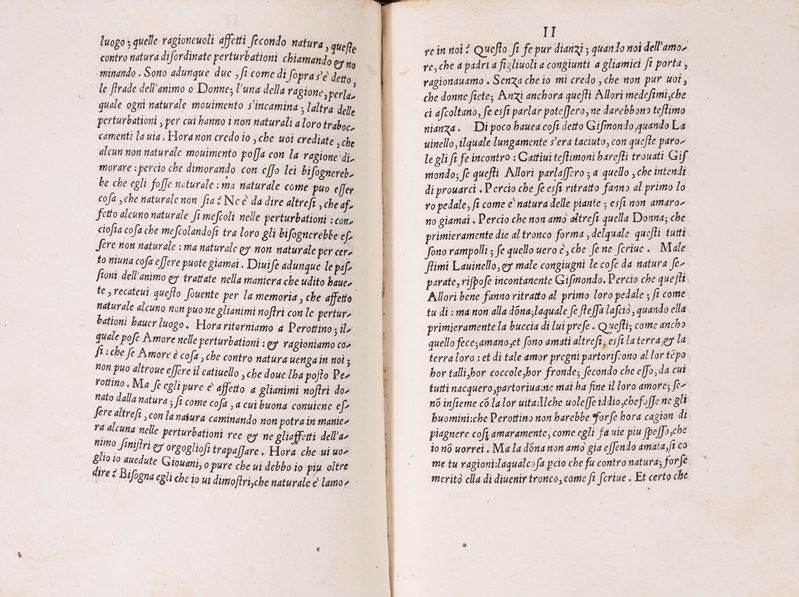 luogo; quelle ragioneuoli affetti ſecondo natura, queſte
contro natura diſordinate perturbationi chiamando & no
minando. Sono adunque due, ſi come di ſopra s'è detto,
le ſtrade dell'animo o Donne; l'una della ragione, perla
quale ogni naturale mouimento s'incamina; laltra delle
perturbationi, per cui hanno i non naturali a loro traboc-
camenti la uia. Hora non credo io, che uoi crediate, che
alcun non naturale mouimento poſſa con la ragione di-
morare: percio che dimorando con eſſo lei biſognereb-
be che egli foſſe naturale: ma naturale come puo eſſer
coſa, che naturale non ſia? Ne è da dire altreſi, che af-
fetto alcuno naturale ſi meſcoli nelle perturbationi: con-
cioſia coſa che meſcolandoſi tra loro gli biſognerebbe eſ-
ſere non naturale: ma naturale & non naturale per cer-
to niuna coſa eſſere puote giamai. Diuiſe adunque le paſ-
ſioni dell'animo & trattate nella maniera che udito haue-
te, recateui queſto ſouente per la memoria, che affetto
naturale alcuno non puo ne glianimi noſtri con le pertur-
bationi hauer luogo. Hora ritorniamo a Perottino; il-
quale poſe Amore nelle perturbationi: & ragioniamo co-
ſi: che ſe Amore è coſa, che contro natura uenga in noi;
non puo altroue eſſere il catiuello, che doue lha poſto Pe-
rottino. Ma ſe egli pure è affetto a glianimi noſtri do-
nato dalla natura; ſi come coſa, a cui buona conuiene eſ-
ſere altreſi, con la natura caminando non potra in manie-
ra alcuna nelle perturbationi ree & ne gliaffetti dell'a-
nimo ſiniſtri & orgoglioſi trapaſſare. Hora che ui uo-
glio io auedute Giouani, o pure che ui debbo io piu oltre
dire? Biſogna egli che io ui dimoſtri, che naturale è lamo-
II
re in noi? Queſto ſi fe pur dianzi; quando noi dell'amo-
re, che a padri a figliuoli a congiunti a gliamici ſi porta,
ragionauamo. Senza che io mi credo, che non pur uoi,
che donne ſiete; Anzi anchora queſti Allori medeſimi, che
ci aſcoltano, ſe eſsi parlar poteſſero, ne darebbono teſtimo
nianza. Di poco hauea coſi detto Giſmondo, quando La
uinello, ilquale lungamente s'era taciuto, con queſte paro-
le gli ſi fe incontro: Cattiui teſtimoni hareſti trouati Giſ
mondo; ſe queſti Allori parlaſſero; a quello, che intendi
di prouarci. Percio che ſe eſsi ritratto fanno al primo lo
ro pedale, ſi come è natura delle piante; eſsi non amaro-
no giamai. Percio che non amò altreſi quella Donna; che
primieramente die al tronco forma, delquale queſti tutti
ſono rampolli; ſe quello uero è, che ſe ne ſcriue. Male
ſtimi Lauinello, & male congiugni le coſe da natura ſe-
parate, riſpoſe incontanente Giſmondo. Percio che queſti
Allori bene fanno ritratto al primo loro pedale; ſi come
tu di: ma non alla dōna, laquale ſe ſteſſa laſciò, quando ella
primieramente la buccia di lui preſe. Queſti; come ancho
quello fece; amano, et ſono amati altreſi, eſsi la terra, & la
terra loro: et di tale amor pregni partoriſcono al lor tēpo
hor talli, hor coccole, hor fronde; ſecondo che eſſo, da cui
tutti nacquero, partoriua: ne mai ha fine il loro amore; ſe-
nō inſieme cō la lor uita: Ilche uoleſſe iddio, che foſſe ne gli
huomini: che Perottino non harebbe forſe hora cagion di
piagnere coſi amaramente, come egli fa uie piu ſpeſſo, che
io nō uorrei. Ma la dōna non amò gia eſſendo amata, ſi co
me tu ragioni: laqual coſa pcio che fu contro natura; forſe
meritò ella di diuenir tronco, come ſi ſcriue. Et certo che